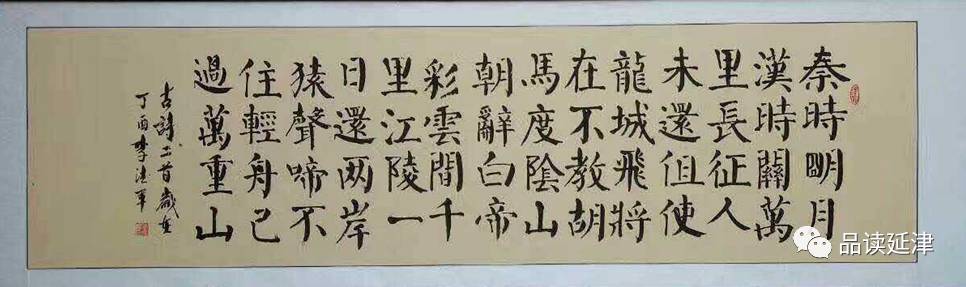 秦時明月
漢時關萬
里長征人
未還但使
龍城飛將
在不教胡
馬度陰山
朝辭白帝
彩雲間千
里江陵一
日還两岸
猿聲啼不
住輕舟已
過萬重山
古詩二首歲在
丁酉李
品读延津